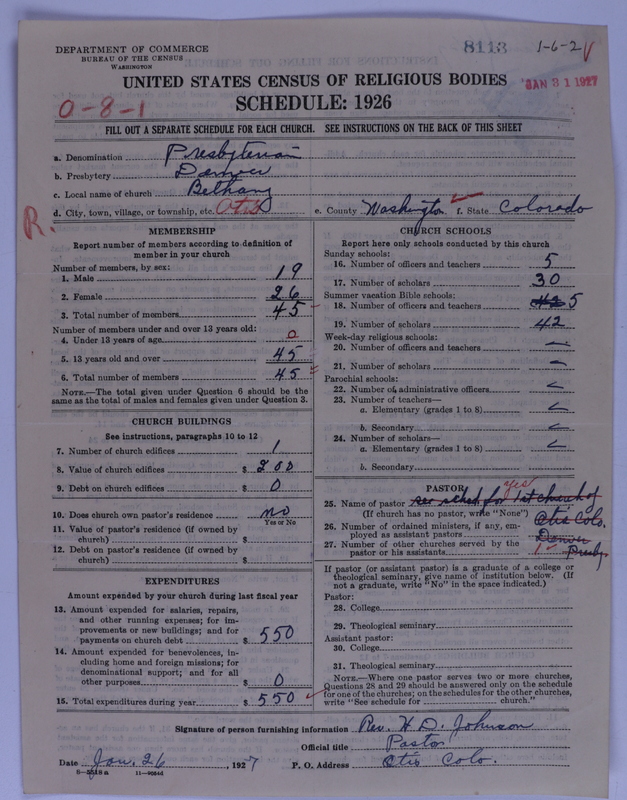 DEPARTMENT OF COMMERCE
BUREAU OF THE CENSUS
WASHINGTON
8113
1-6-2
UNITED STATES CENSUS OF RELIGIOUS BODIES
JAN 31 1927
SCHEDULE: 1926
0-8-1
FILL OUT A SEPARATE SCHEDULE FOR EACH CHURCH. SEE INSTRUCTIONS ON THE BACK OF THIS SHEET
a. Denomination Presbyterian
b. Presbytery Denver
c. Local name of church Bethany
d. City, town, village, or township, etc. Otis e. County Washington f. State Colorado
R.
MEMBERSHIP
Report number of members according to definition of
member in your church
Number of members, by sex:
1. Male 19
2. Female 26
3. Total number of members 45
Number of members under and over 13 years old:
4. Under 13 years of age 0
5. 13 years old and over 45
6. Total number of members 45
NOTE.—The total given under Question 6 should be the
same as the total of males and females given under Question 3.
CHURCH BUILDINGS
See instructions, paragraphs 10 to 12
7. Number of church edifices 1
8. Value of church edifices $ 200
9. Debt on church edifices $ 0
10. Does church own pastor's residence no
Yes or No
11. Value of pastor's residence (if owned by
church) $
12. Debt on pastor's residence (if owned by
church) $
EXPENDITURES
Amount expended by your church during last fiscal year
13. Amount expended for salaries, repairs,
and other running expenses; for im-
provements or new buildings; and for
payments on church debt $ 550
14. Amount expended for benevolences, in-
cluding home and foreign missions; for
denominational support; and for all
other purposes $ 0
15. Total expenditures during year $ 550
CHURCH SCHOOLS
Report here only schools conducted by this church
Sunday schools:
16. Number of officers and teachers 5
17. Number of scholars 30
Summer vacation Bible schools:
18. Number of officers and teachers 42 5
19. Number of scholars 42
Week-day religious schools:
20. Number of officers and teachers
21. Number of scholars
Parochial schools:
22. Number of administrative officers
23. Number of teachers—
a. Elementary (grades 1 to 8)
b. Secondary
24. Number of scholars—
a. Elementary (grades 1 to 8)
b. Secondary
PASTOR
yes
25. Name of pastor see sched. for 1st church of
(If church has no pastor, write "None") Otis Colo.
26. Number of ordained ministers, if any, em-
ployed as assistant pastors Denver
27. Number of other churches served by the
pastor or his assistants 1 Presby.
If pastor (or assistant pastor) is a graduate of a college or
theological seminary, give name of institution below. (If
not a graduate, write "No" in the space indicated.)
Pastor:
28. College
29. Theological seminary
Assistant pastor:
30. College
31. Theological seminary
NOTE.—Where one pastor serves two or more churches,
Questions 28 and 29 should be answered only on the schedule
for one of the churches; on the schedules for the other churches,
write "See schedule for church."
Signature of person furnishing information Rev. H. D. Johnson
Official title Pastor
Date Jan. 26, 1927 P. O. Address Otis Colo.
8-5518 a 11-9064d